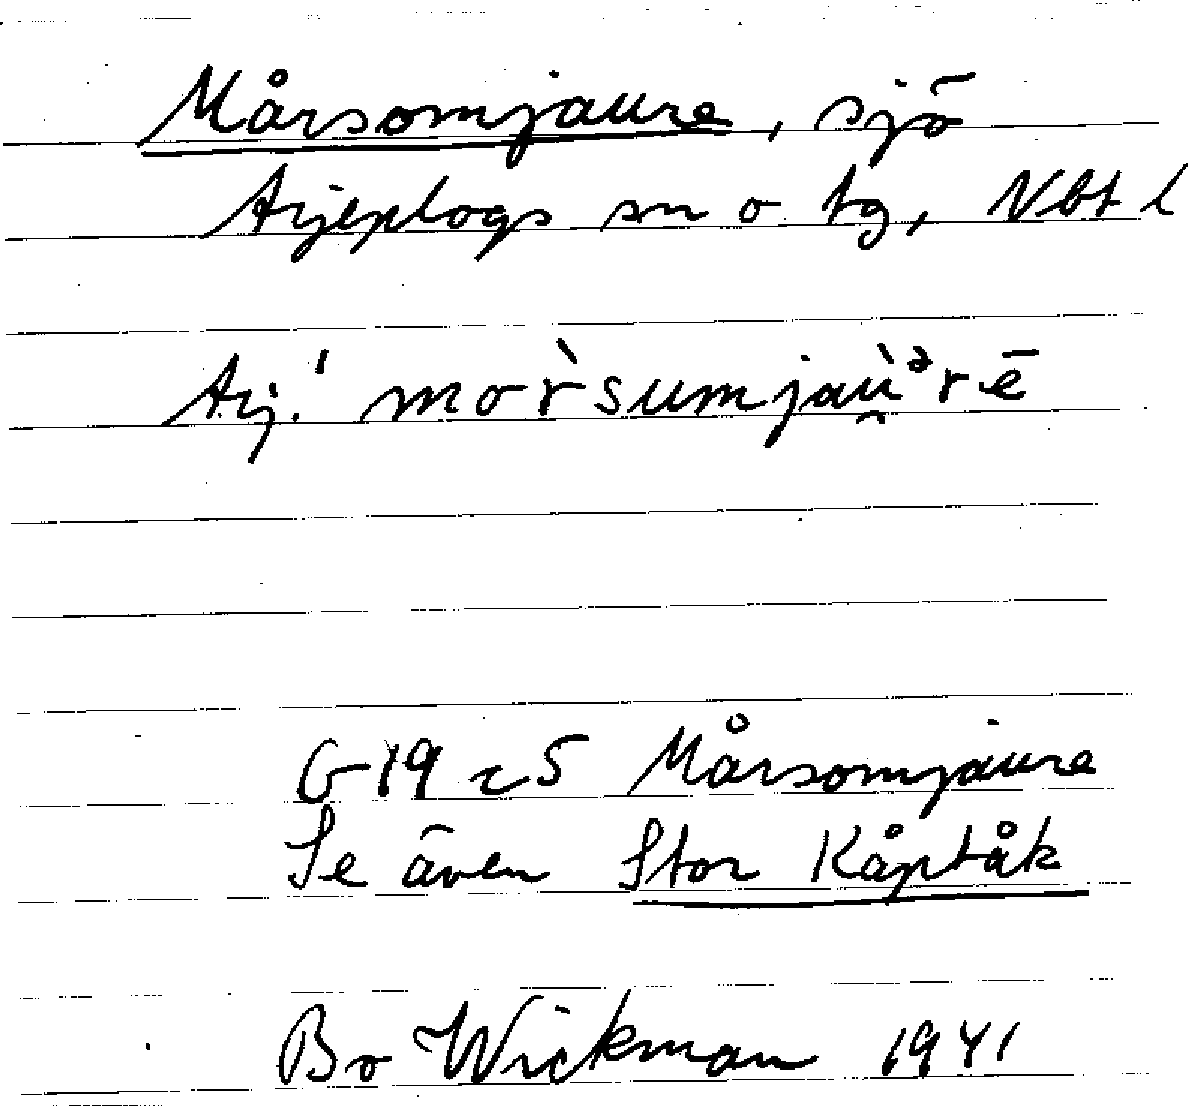 Mårsomjaure, sjö
Arjeplogs sn o tg, Nbt l
Arj.
G 19 c 5 Mårsomjaure
Se även Stor Kåptåk
Bo Wickman 1941